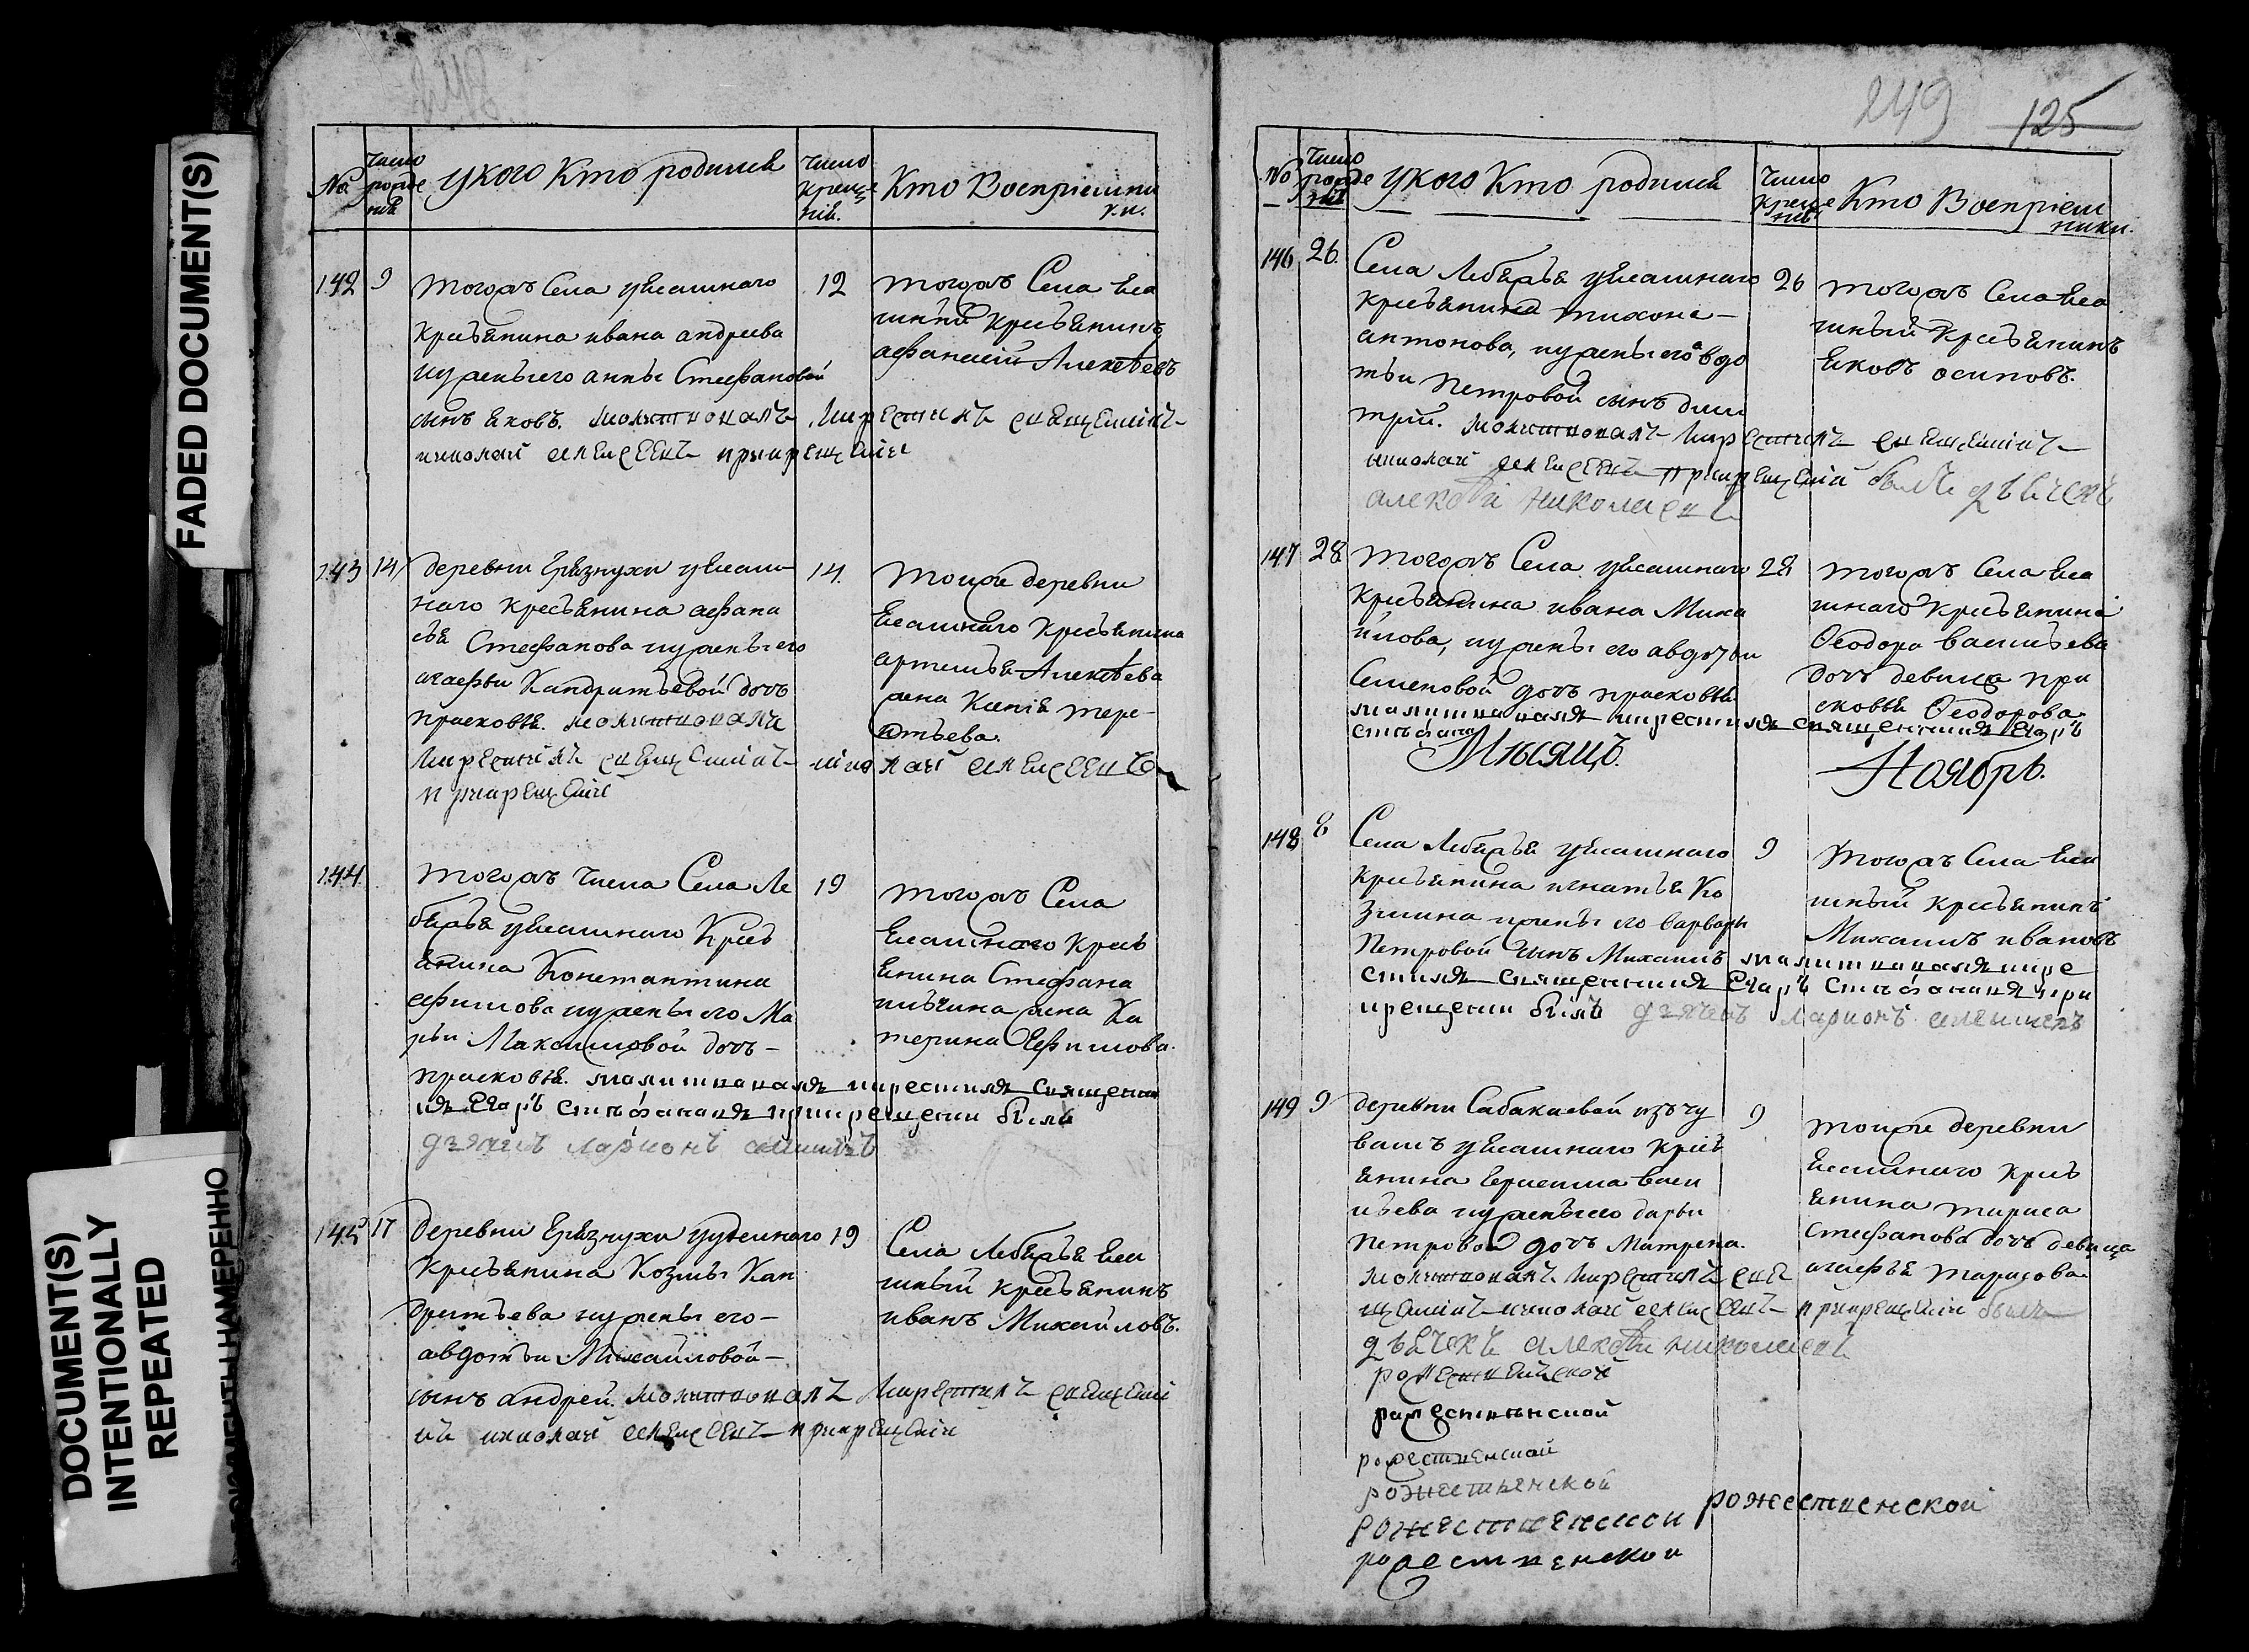 FADED DOCUMENT(S)
DOCUMENT(S)
INTENTIONALLY
REPEATED
248
№
Число рожде нія
у кого Кто родился
Число Креще нія.
Кто Воспріемни ки.
142 9
тогожъ Села уясашнаго
Кресьянина ивана андреева
ижены его анны Стефановой
сынъ яковъ. молитвовалъ икрестилъ священникъ
николай алексеевъ прикрещении
12
тогожъ Села яса
шнай кресьянинъ
афанасий Алексѣевъ
143 14
деревни Грязнухи уясаш
наго кресьянина афана
сья Стефанова ижены его
агафьи Кандратьевой дочь
прасковья. молитвовалъ
икрестилъ священникъ николай алексеевъ
прикрещении
14.
тоиже деревни
ясашнаго Кресьянина
артемья Алексѣева
жена Ксенія тере-
нтьева.
144
тогожъ числа Села Ле
бяжья уясашнаго Кресь
янина Константина
ефимова ижены его Ма
рьи Максимовой дочь-
прасковья. малитвавалъ икрестилъ священни
иκъ Егоръ стефановъ прикрещении былъ
дьячекъ ларионъ
19
тогожъ Села
ясашнаго кресь
янина Стефана
жена Ка
терина Ефимова.
145 17
деревни Грязнухи уудельнаго
Кресьянина Козмы Кан
дратьева ижены его-
авдотьи Михайловой-
сынъ андрей. молитвовалъ икрестилъ священни
къ николай алексеевъ прикрещении
19
Села Лебяжья яса
шный кресьянинъ
иванъ Михайловъ.
249 125
№
Число рожде нія
у кого Кто родился
Число Креще нія
Кто Воспріем ники.
146 26.
Села Лебяжья уясашнаго
кресьянина тихона-
антонова, ижены его авдо
тьи Петровой сынъ дми
трій. молитвовалъ икрестилъ священникъ
николай алексеевъ прикрещении былъ дьячекъ
алексѣй николаевъ
26
тогожъ Села яса
шный кресьянинъ
яковъ осиповъ.
147 28
тогожъ Села уясашнаго
кресьянина ивана Миха
йлова, ижены его авдотьи
Семеновой дочь прасковья
малитвавалъ икрестилъ священникъ Егоръ
стефановъ
28
тогожъ Села яса
шнаго кресьянина
Ѳеодора васильева
дочь девица пра
сковья Ѳеодорова
Мѣсяцъ.
Ноябрь.
148 8
Села Лебяжья уясашнаго
кресьянина игнатья Ко
змина ижены его варвары
Петровой сынъ Михаилъ малитвавалъ икре
стилъ священникъ Егоръ стефановъ при
крещении былъ дьячекъ ларионъ
9
тогожъ Села яса
шный кресьянинъ
Михаилъ ивановъ
149 9
деревни Сабакаевой изъ чу
вашъ уясашнаго кресь
янина васи
льева ижены его дарьи
Петровой дочь Матрена.
молитвовалъ икрестилъ свя
щенникъ николай алексеевъ прикрещении былъ
дьячекъ алексѣй николаевъ
9
тоиже деревни
ясашнаго кресь
янина тараса
стефанова дочь девица
агафья тарасова
рожественской
ражественской
рожественской
рожественской
рожественской
рожественской
рожественской